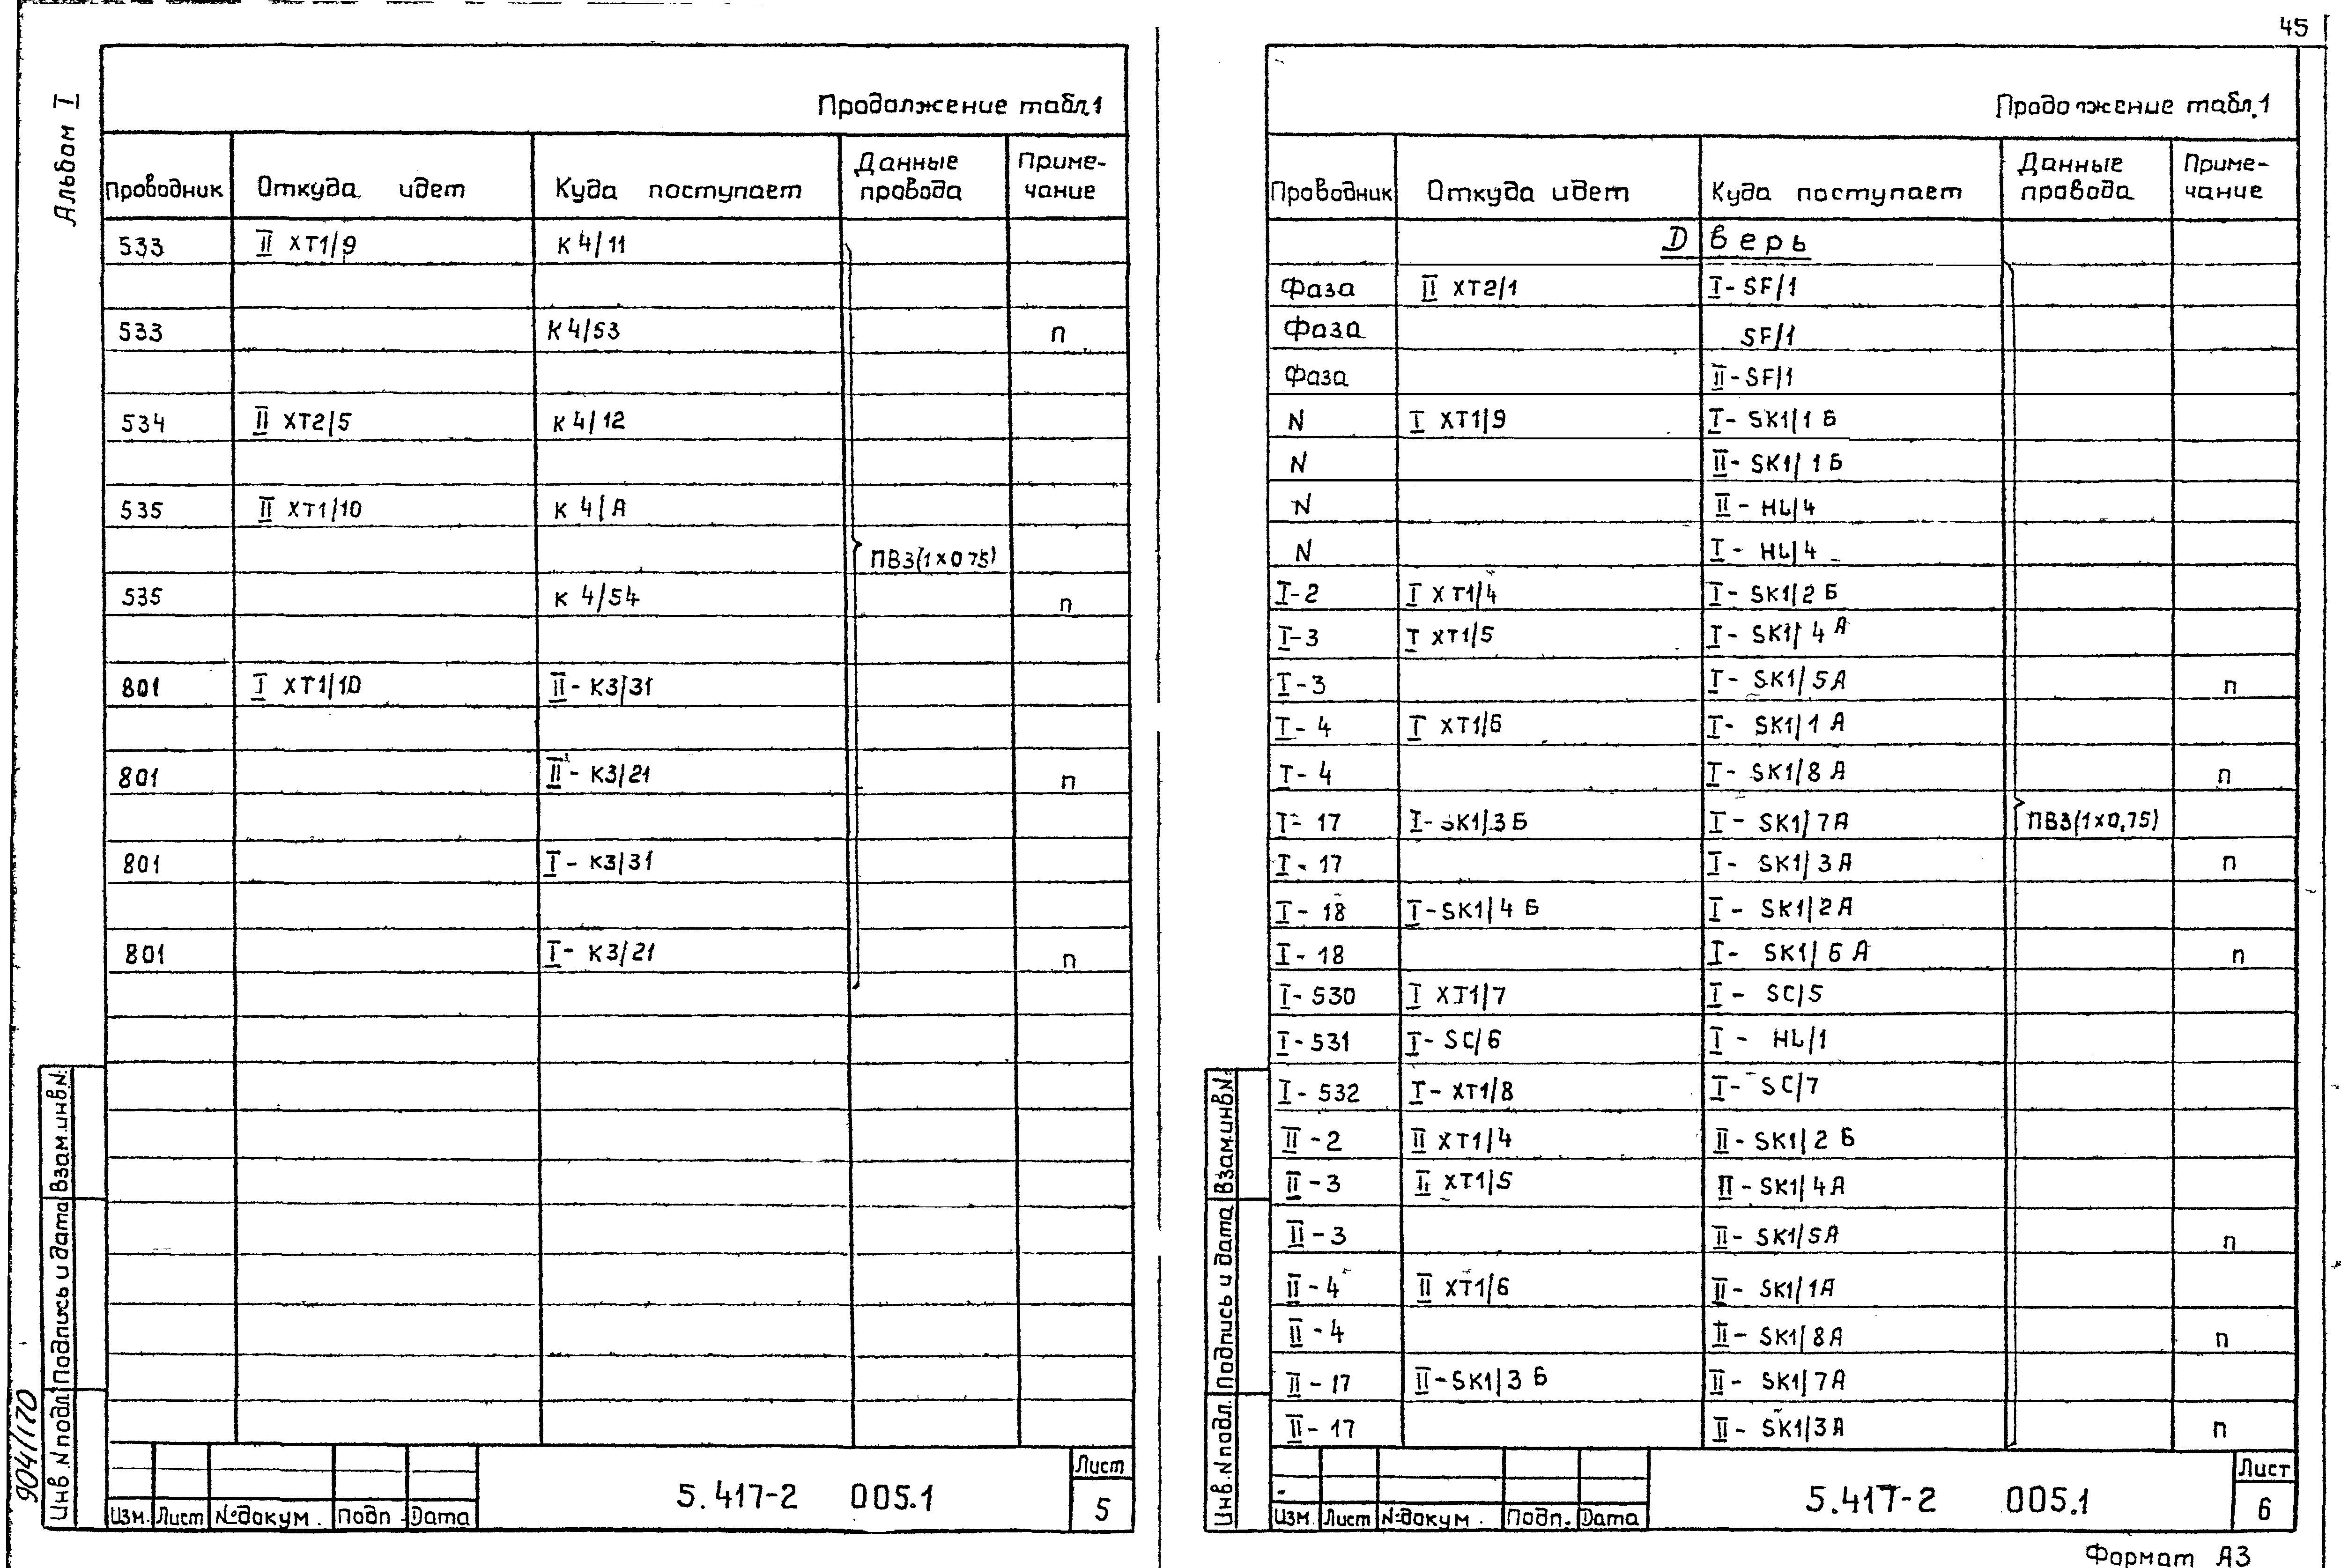 45
Альбом I
Продолжение табл.1
Проводник Откуда идет Куда поступает Данные провода Приме-чание
533 II XT1/9 К4/11
533 К4/53 п
534 II XT2/5 К4/12
535 II XT1/10 К4/А
ПВ3(1×0,75)
535 К4/54 п
801 I XT1/10 II-К3/31
801 II-К3/21 п
801 I-К3/31
801 I-К3/21 п
Взам.инв.N:
Подпись и дата
Инв.N подл.
904/170
Изм. Лист №докум. Подп. Дата
5.417-2 005.1
Лист
5
Продолжение табл.1
Проводник Откуда идет Куда поступает Данные провода Приме-чание
Дверь
Фаза II XT2/1 I-SF/1
Фаза SF/1
Фаза II-SF/1
N I XT1/9 I-SK1/1Б
N II-SK1/1Б
N II-HL/4
N I-HL/4
I-2 I XT1/4 I-SK1/2Б
I-3 I XT1/5 I-SK1/4А
I-3 I-SK1/5А п
I-4 I XT1/6 I-SK1/1А
I-4 I-SK1/8А п
I-17 I-SK1/3Б I-SK1/7А ПВ3(1×0,75)
I-17 I-SK1/3А п
I-18 I-SK1/4Б I-SK1/2А
I-18 I-SK1/6А п
I-530 I XT1/7 I-SC/5
I-531 I-SC/6 I-HL/1
I-532 I-XT1/8 I-SC/7
II-2 II XT1/4 II-SK1/2Б
II-3 II XT1/5 II-SK1/4А
II-3 II-SK1/5А п
II-4 II XT1/6 II-SK1/1А
II-4 II-SK1/8А п
II-17 II-SK1/3Б II-SK1/7А
II-17 II-SK1/3А п
Взам.инв.N:
Подпись и дата
Инв.N подл.
Изм. Лист №докум. Подп. Дата
5.417-2 005.1
Лист
6
Формат А3